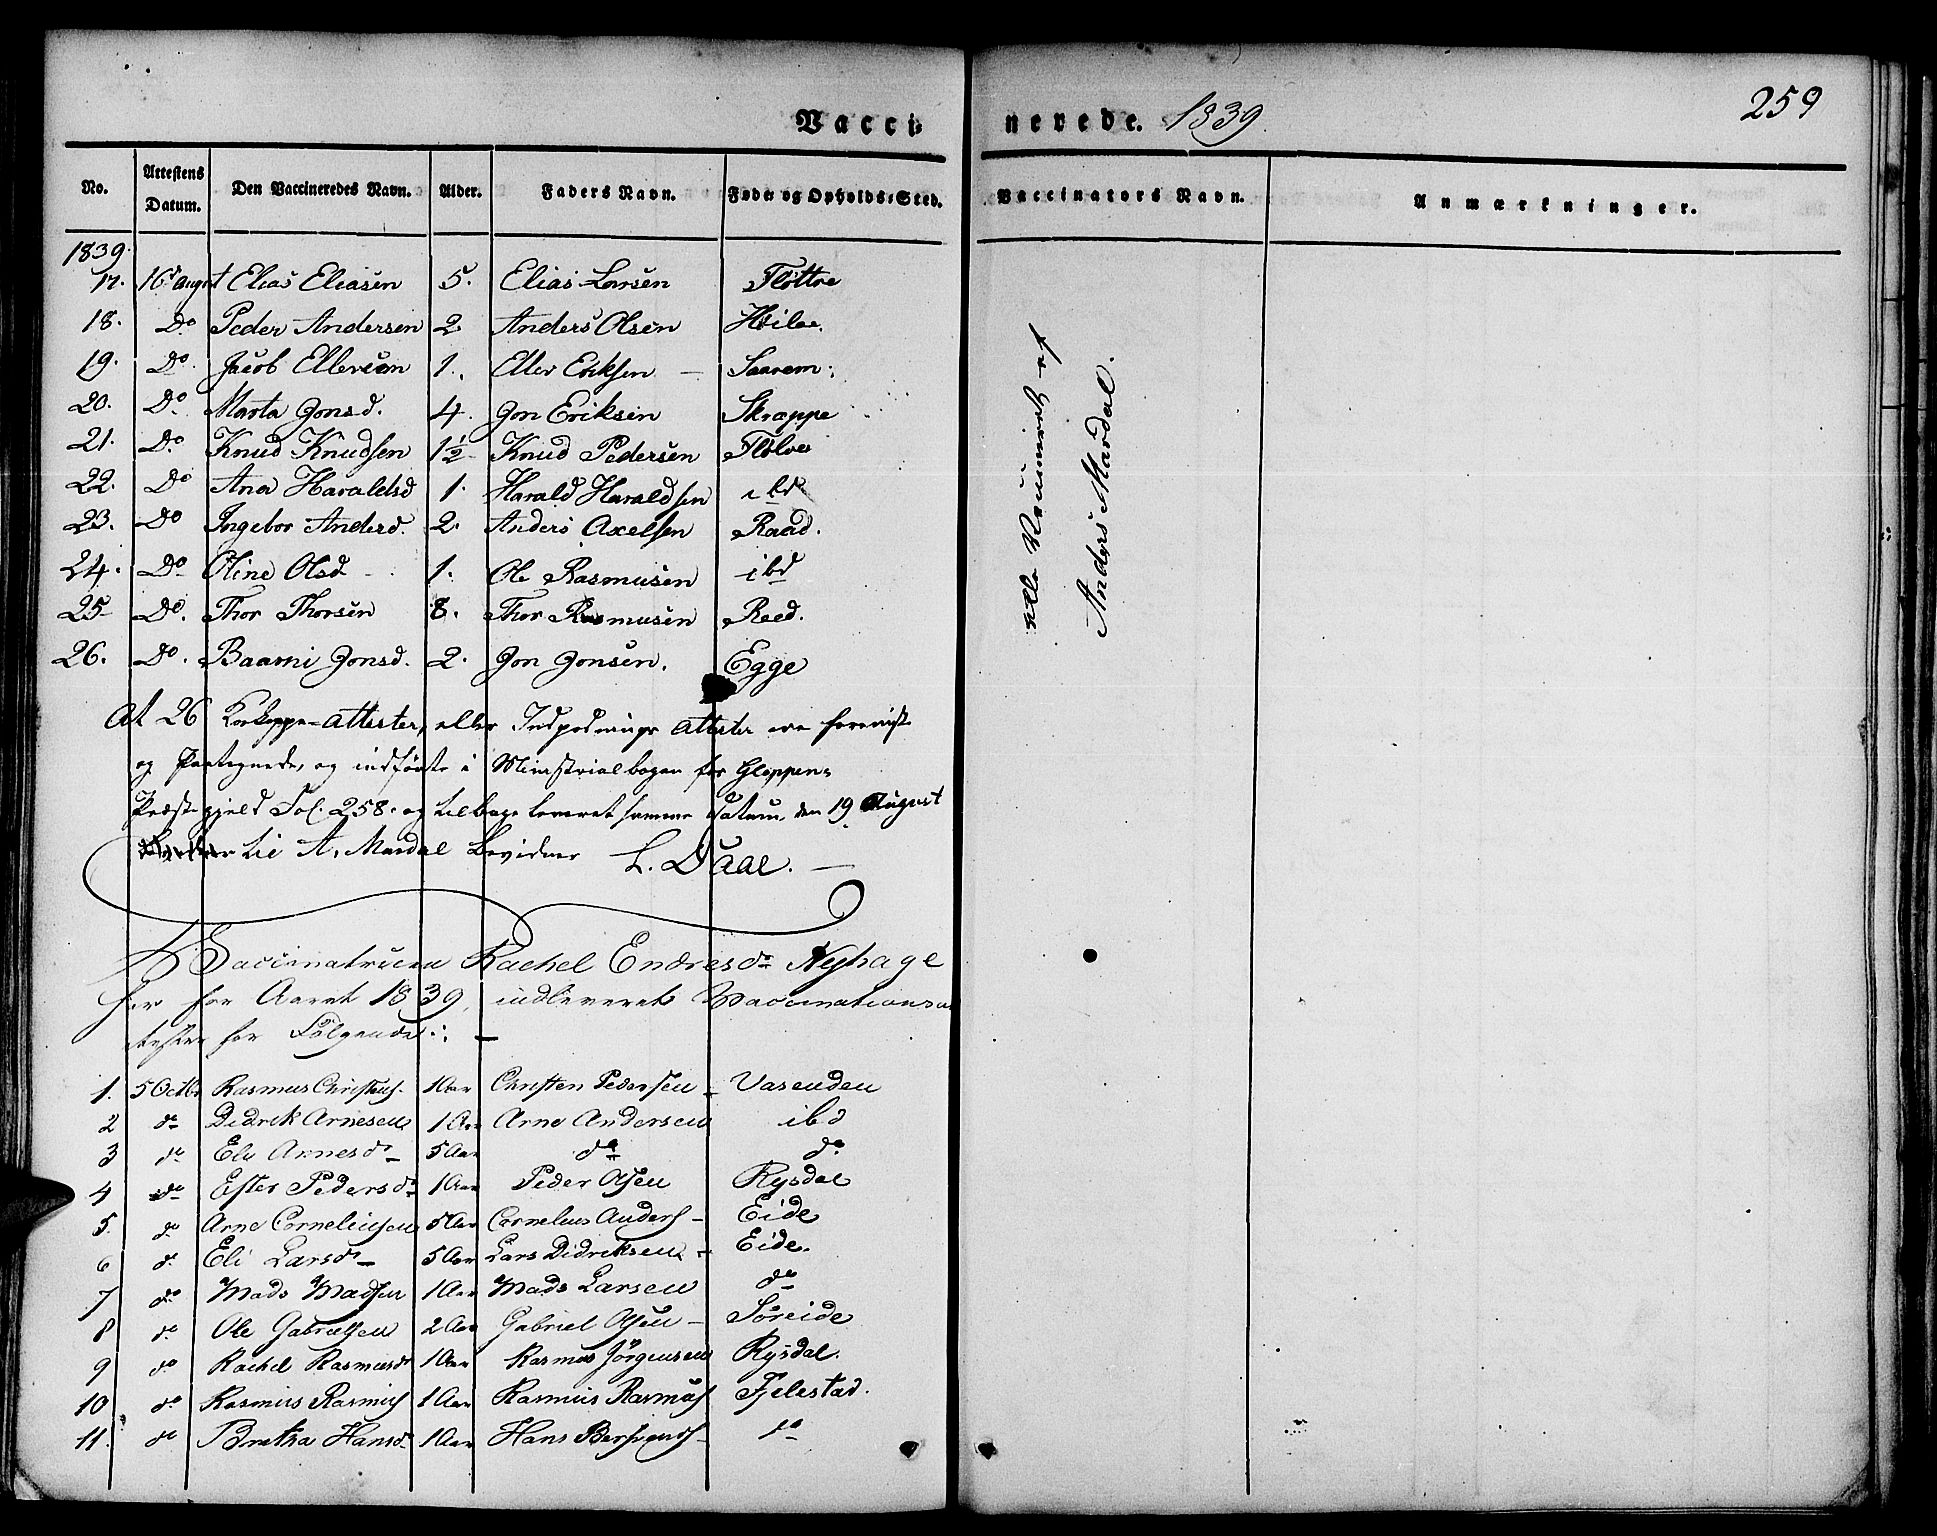 Vacci-
nerede. 1839.
259
No.
Attestens Datum.
Den Vaccineredes Navn.
Alder.
Faders Navn.
Føde og Opholds-Sted.
Vaccinators Navn.
Anmærkninger.
1839.
17. 16 August Elias Eliasen 5. Elias Larsen Fløttre
18. Do Peder Andersen 2. Anders Olsen Høilee.
19. Do Jacob Ellersen 1. Eller Eriksen Saarem.
20. Do Marta Jonsd. 4. Jon Eriksen Skrappe
21. Do Knud Knudsen 1½ Knud Pedersen
22. Do Ana Haraldsd 1. Harald Haraldsen ibd
23. Do Ingebor Andersd. 2. Anders Axelsen Raad.
24. Do Oline Olsd 1. Ole Rasmusen ibd
25 Do. Thor Thorsen 8. Thor Rasmusen Reed.
26. Do. Baarni Jonsd. 2. Jon Jonsen. Egge
alle Vaccineret af
Anders Mardal.
At 26 Kokoppe-Attester, eller Indpodnings Attester ere foreviist
og Paategnede, og indførte i Ministrialbogen for Gloppens
Præstegjeld Fol. 258. og tilbage leveret samme Datum, den 19 August
til A. Mardal bevidner L. Daae.
Vaccinatricen Rachel Endresdr Nyhage
har for Aaret 1839, indleveret Vaccinationsat
tester for Følgende:
1. 5 Octbr Rasmus Christens. 1 Aar Christen Pedersen Vasenden
2 do Didrik Arnesen 1 Aar Arne Andersen ibd
3 do Eli Arnesdr 5 Aar do do
4 do Ester Pedersdr 1 Aar Peder Olsen Rysdal
5. do Arne Corneliusen 5 Aar Cornelius Anders Eide
6 do Eli Larsdr 5 Aar Lars Didriksen Eide.
7 do Mads Madsen 1 Aar Mads Larsen do
8 do Ole Gabrielsen 2 Aar Gabriel Olsen Søreide
9 do Rachel Rasmusdr 1 Aar Rasmus Jörgensen Rysdal.
10 do Rasmus Rasmus 1 Aar Rasmus Rasmus Fjelestad.
11. do Bretha Hansdr 1 Aar Hans do